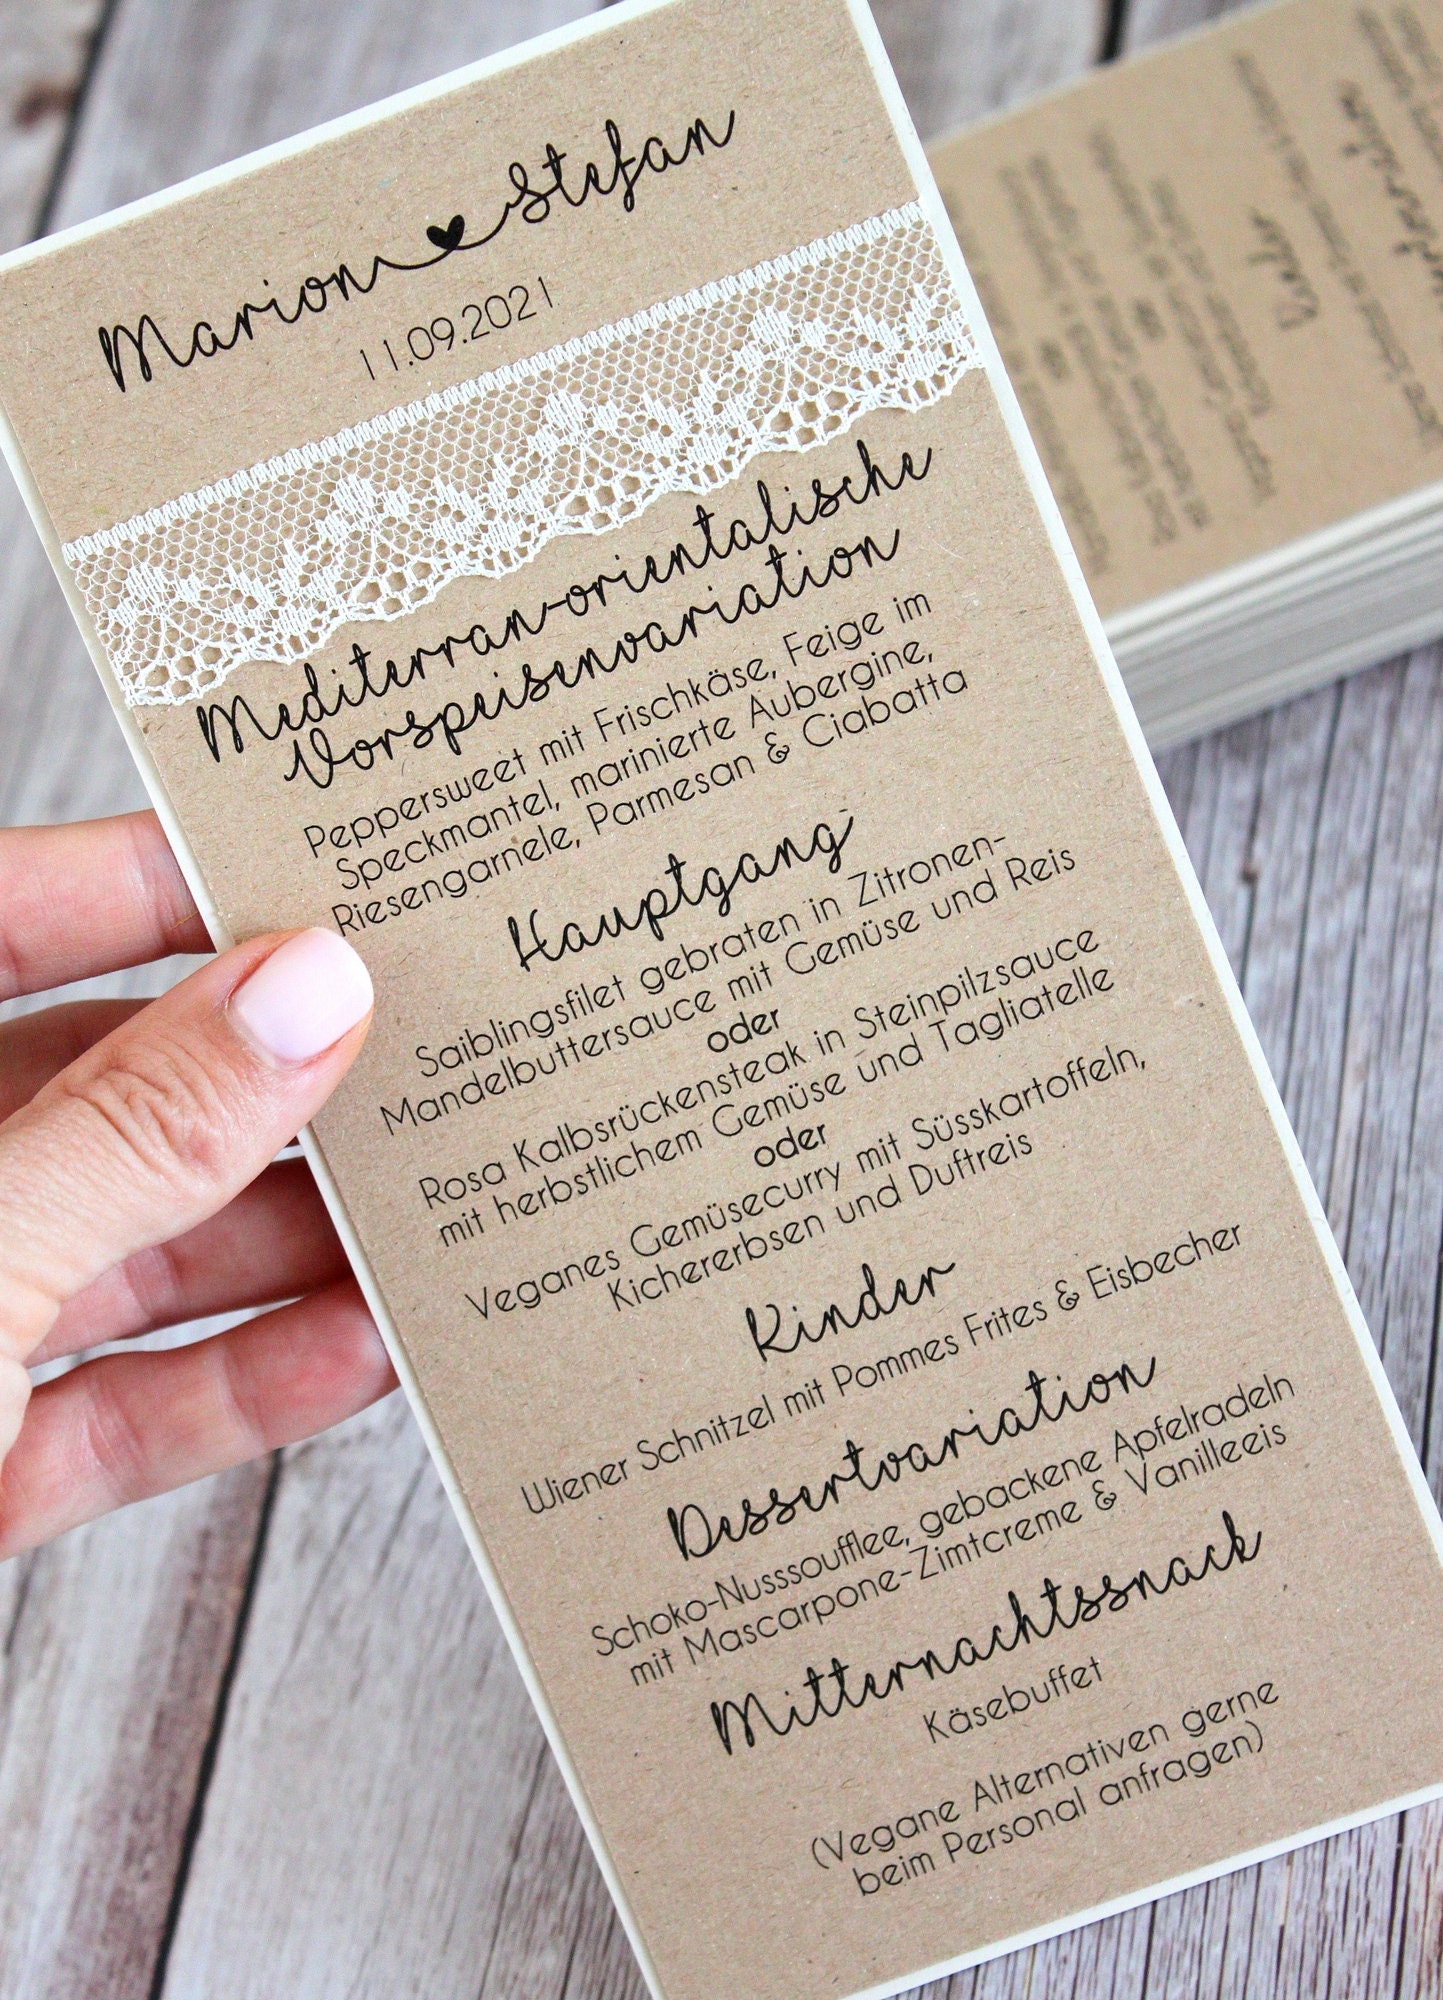 Marion Stefan
11.09.2021
Mediterran-orientalische
Vorspeisenvariation
Peppersweet mit Frischkäse, Feige im
Speckmantel, marinierte Aubergine,
Riesengarnele, Parmesan & Ciabatta
Hauptgang
Saiblingsfilet gebraten in Zitronen-
Mandelbuttersauce mit Gemüse und Reis
oder
Rosa Kalbsrückensteak in Steinpilzsauce
mit herbstlichem Gemüse und Tagliatelle
oder
Veganes Gemüsecurry mit Süsskartoffeln,
Kichererbsen und Duftreis
Kinder
Wiener Schnitzel mit Pommes Frites & Eisbecher
Dessertvariation
Schoko-Nusssoufflee, gebackene Apfelradeln
mit Mascarpone-Zimtcreme & Vanilleeis
Mitternachtssnack
Käsebuffet
(Vegane Alternativen gerne
beim Personal anfragen)